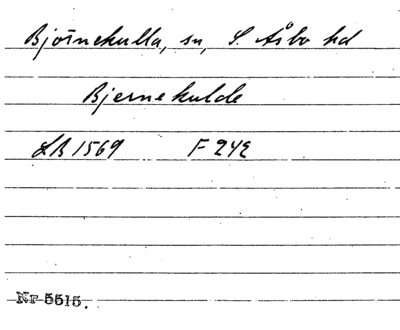 Björnekulla, sn, S. Åsbo hd
Bjernekulde
LB 1569 F 242
Nr 5515.